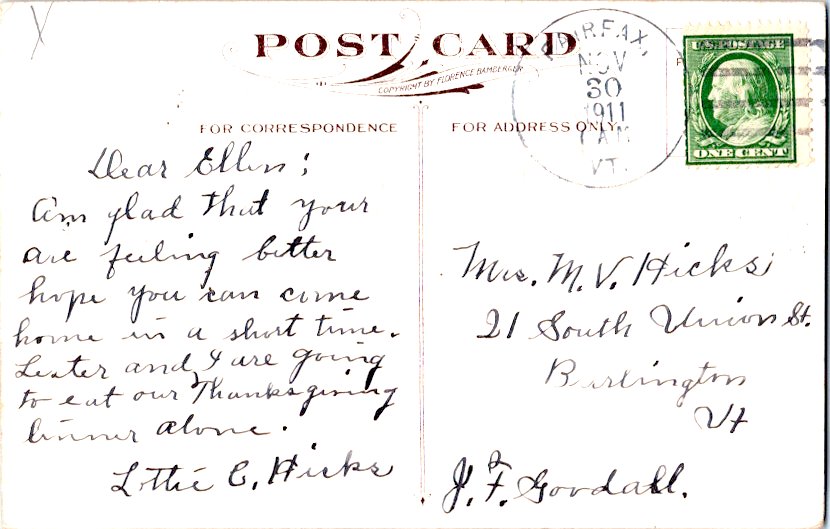 POST CARD
COPYRIGHT BY FLORENCE BAMBERGER
FOR CORRESPONDENCE
FOR ADDRESS ONLY
FAIRFAX,
NOV
30
1911
VT.
U.S. POSTAGE
ONE CENT
Dear Ellen;
Am glad that your
are feeling better
hope you can come
home in a short time.
Lester and I are going
to eat our Thanksgiving
Dinner alone.
Lottie C. Hicks
Mrs. M. V. Hicks
21 South Union St.
Burlington
Vt
J. F. Goodall.